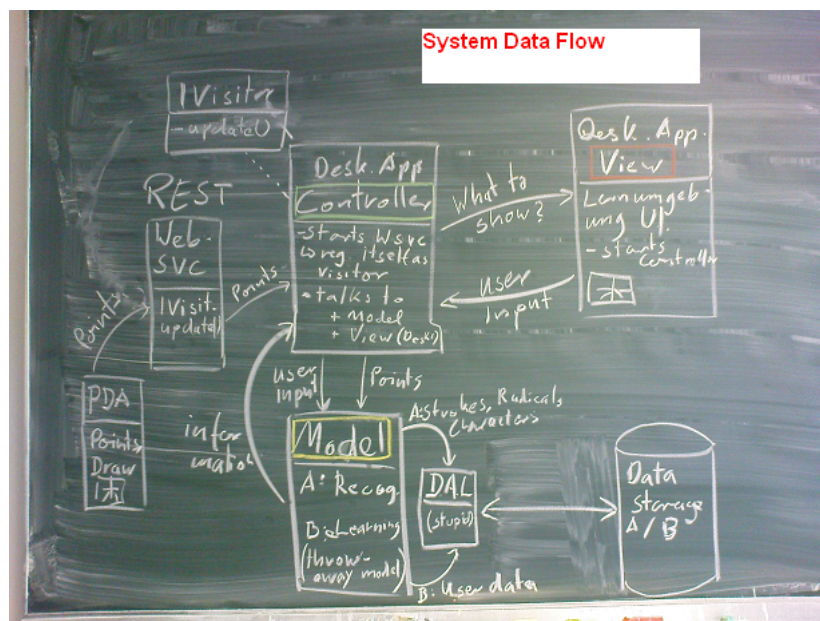 System Data Flow
IVisitor
- update()
REST
Web-
SVC
IVisit.
update()
Points
Points
PDA
Points
Draw
木
Desk. App
Controller
- starts WSVC
reg. itself as
visitor
• talks to
+ Model
+ View (Desk)
What to
show?
user
input
Desk. App.
View
Lernumgeb-
ung UI.
- starts
Controller
木
user
input
Points
infor
mation
Model
A: Recog.
B: Learning
(throw-
away model)
A: strokes, Radicals,
Characters
DAL
(stupid)
B: User data
Data
storage
A / B